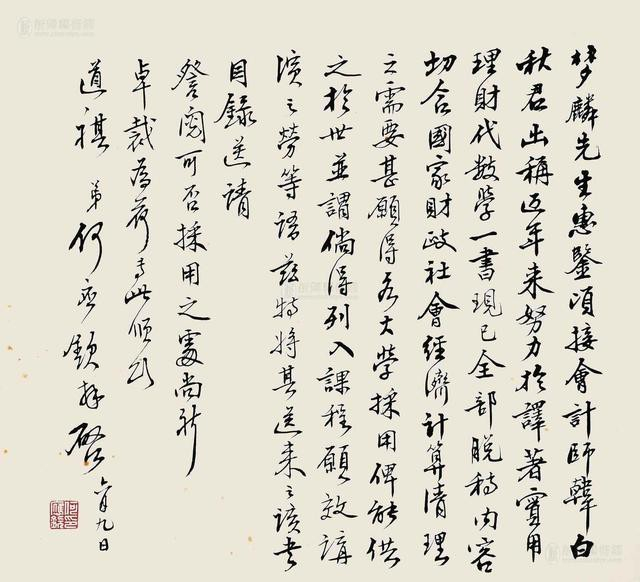 梦麟先生惠鉴顷接會計師韓白
秋君出稱近年来努力於譯著實用
理財代数學一書現已全部脱稿内容
切合國家財政社會經濟計算清理
之需要甚願得各大學採用俾能供
之於世並謂倘得列入課程願效講
演之勞等語兹特將其送来之該書
目錄送請
詧閱可否採用之處尚祈
卓裁為荷專此順頌
道祺 弟何應欽拜啓
六月九日